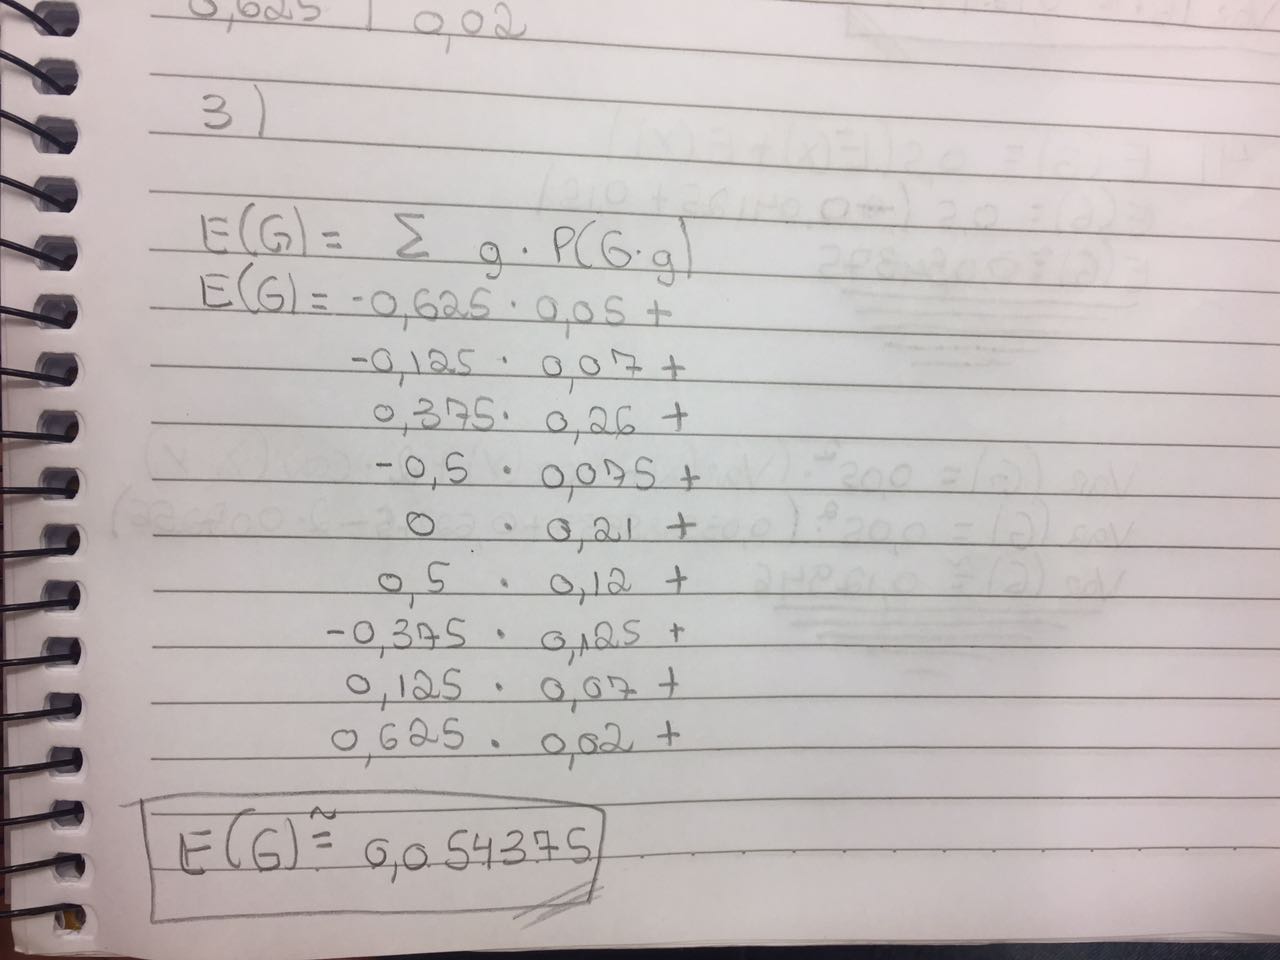 0,625 | 0,02
3)
E(G) = Σ g · P(G·g)
E(G) = -0,625 · 0,05 +
-0,125 · 0,07 +
0,375 · 0,26 +
-0,5 · 0,075 +
0 · 0,21 +
0,5 · 0,12 +
-0,375 · 0,125 +
0,125 · 0,07 +
0,625 · 0,02 +
E(G) ≅ 0,054375